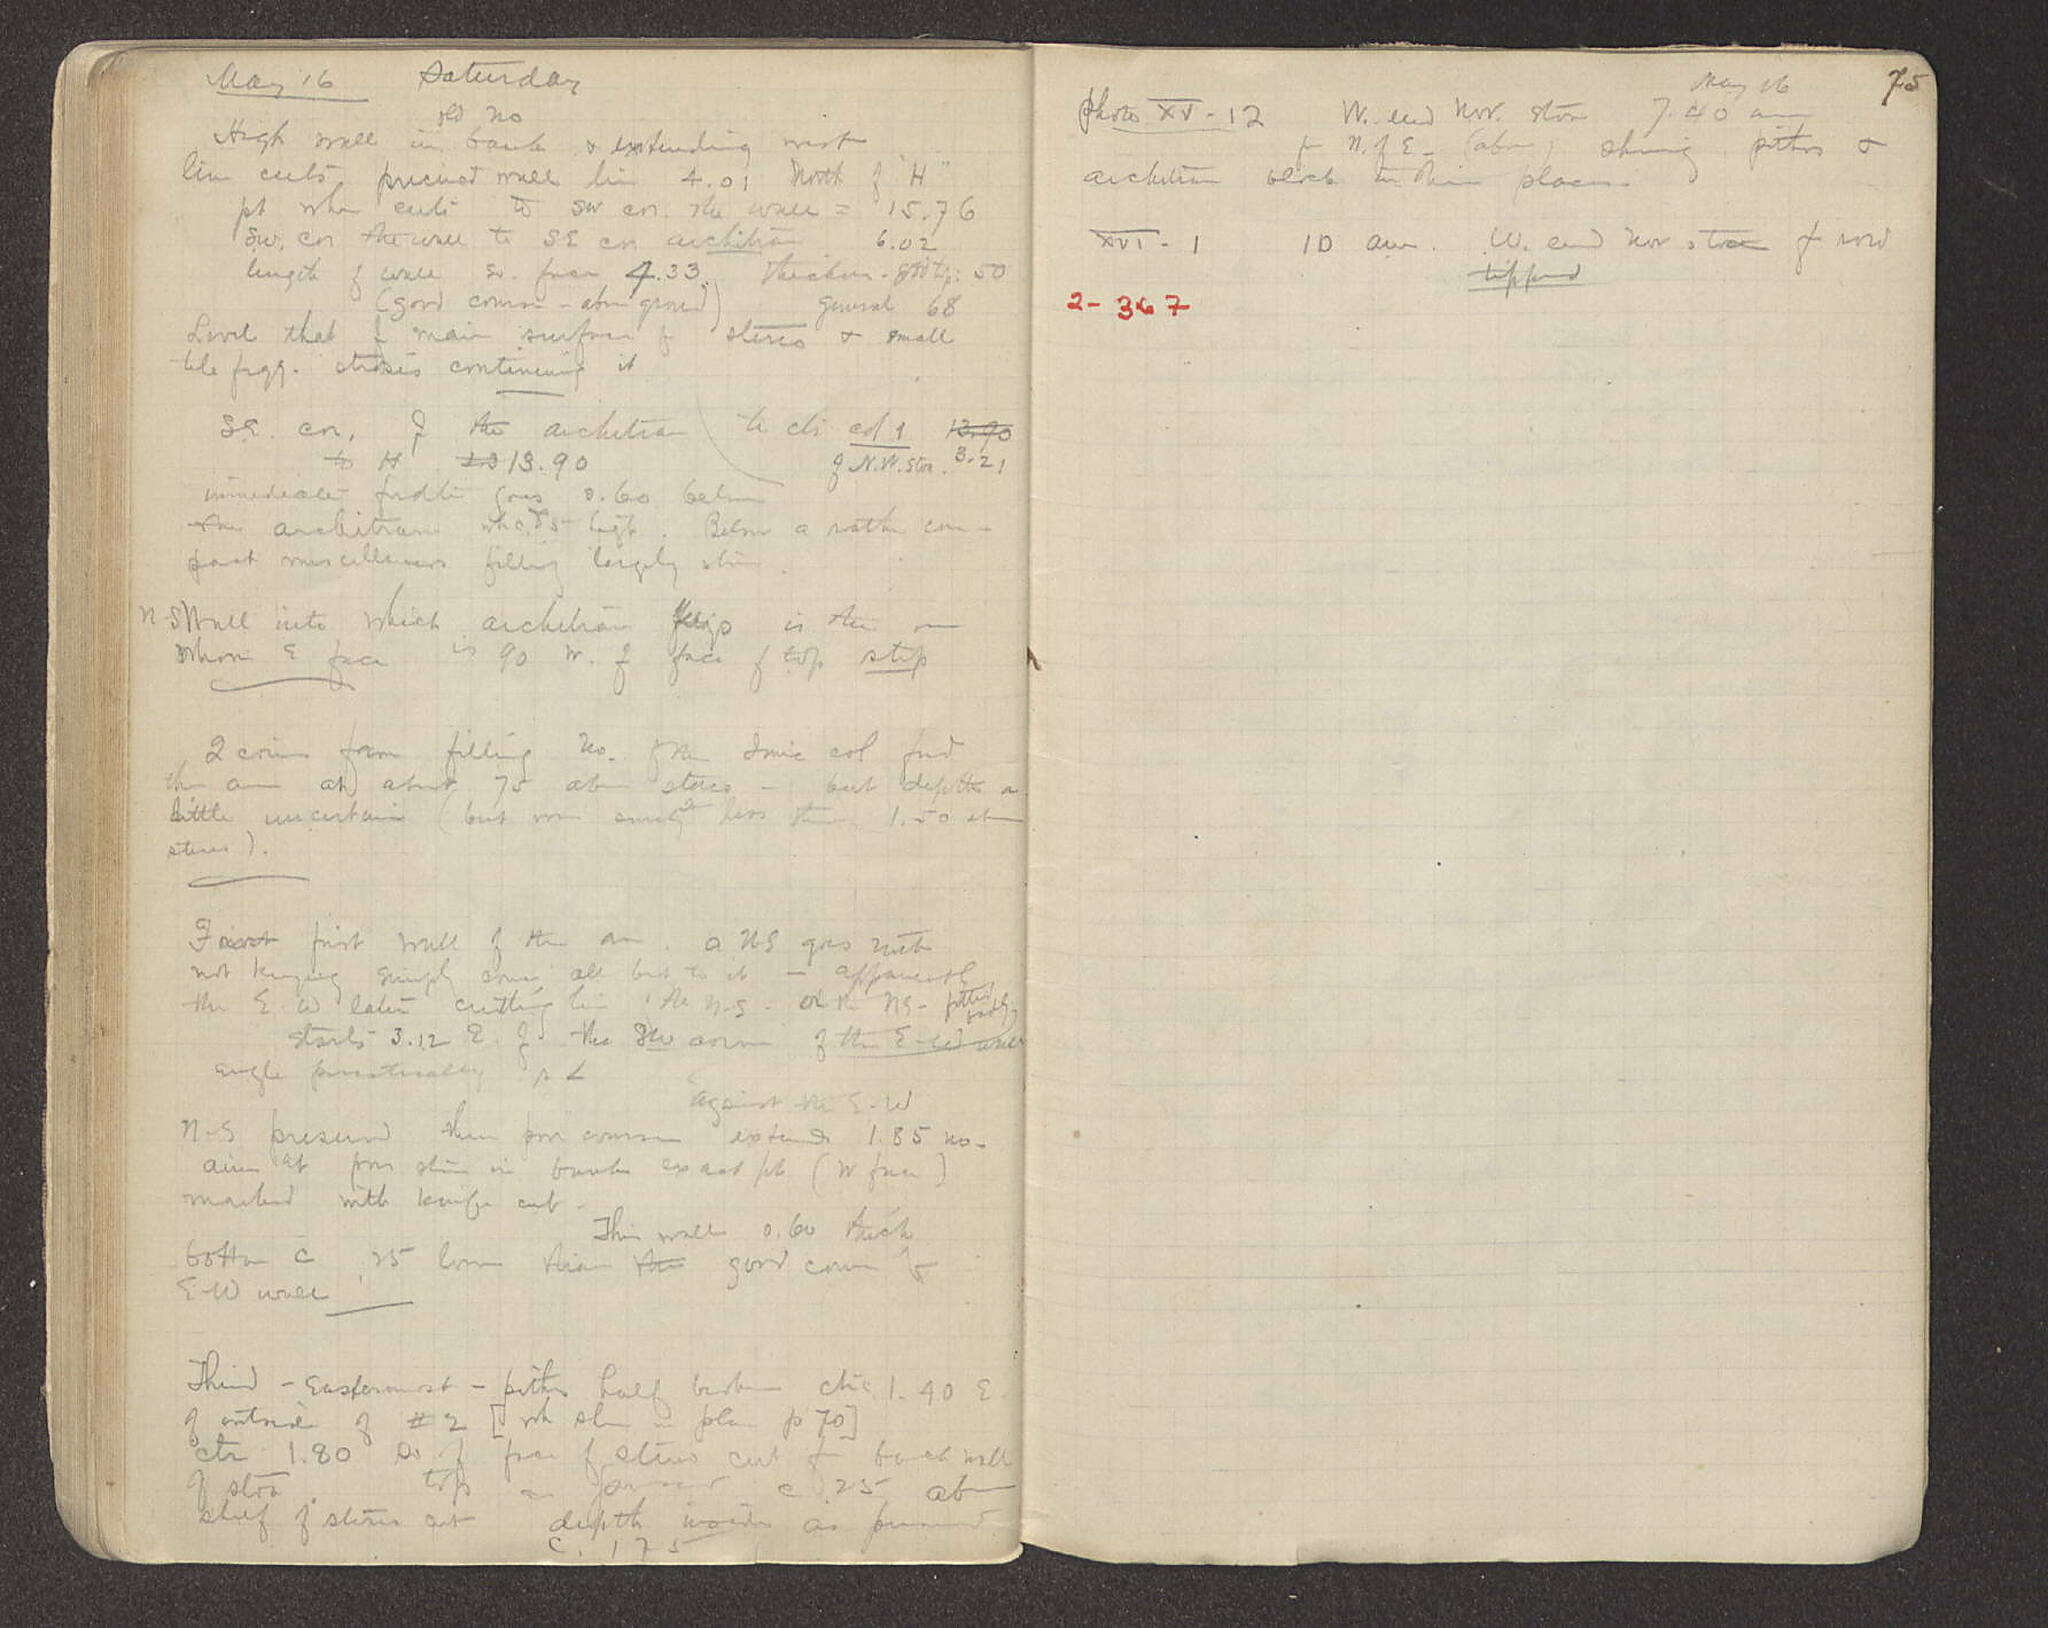 May 16 Saturday
old No
High wall in bank & extending west
line cuts precinct wall line 4.01 North of "H"
pt where cuts to SW cor. the wall = 15.76
S.W. cor the wall to SE cor architrave 6.02
length of wall so. face 4.33. thickness 50
(good course - above ground) general 68
Level that of main surface of stereo & small
tile fragg. strosis continuing it
S.E. cor. of the architrave to ctr col 1 13.90
to H 13.90 of N.W. Stoa. 3.21
immediate goes 0.60 below
the architrave high. Below a rather com-
pact miscellaneous filling largely stone.
N-S Wall into which architrave is the one
whose E face is 90 W. of face of top step
2 coins from filling No. of the Ionic col found
this am at about 75 above stereo - but depth a
little uncertain (but less than 1.50 above
stereo).
first wall of the am. a N-S goes with
not keying simply all but to it - apparently
the E-W later cutting the N-S - or the N-S -
starts 3.12 E. of the SW corner of the E-W wall
angle practically
against the E-W
N-S preserved three poor courses extends 1.85 no-
at poros stone in bank exact pt (W face)
marked with knife cut.
This wall 0.60 thick
bottom c .25 lower than the good course of
E-W wall
Third - Easternmost - pithos half broken ctr. 1.40 E.
of outside of #2 [ plan p 70]
ctr 1.80 So. of face of stereo cut for back wall
of stoa. top as preserved c .25 above
shelf of stereo cut depth inside as preserved
c. 1 75
May 16 75
Photo XV - 12 W. end Nor. stoa 7.40 am
fr N. of E - (above) showing pithos &
architrave block in their places
XVI - 1 10 am. W. end Nor stoa
tipped
2 - 367